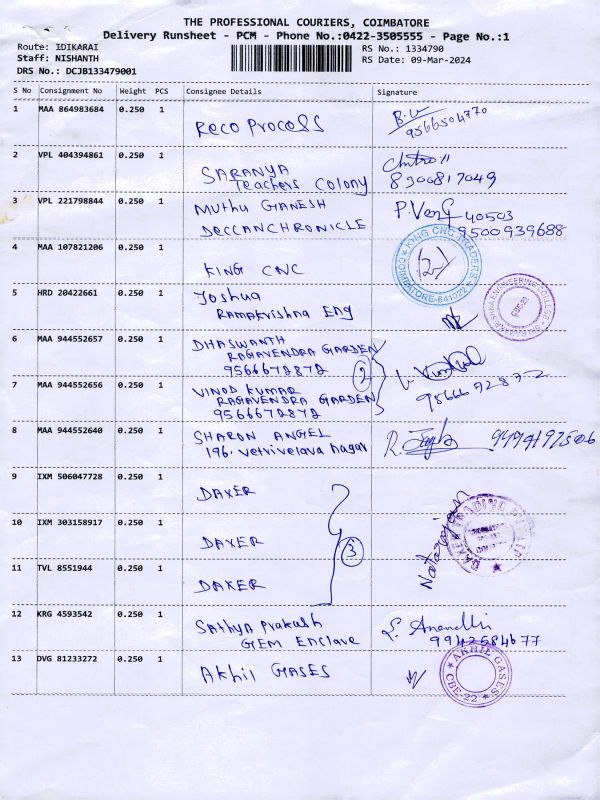 THE PROFESSIONAL COURIERS, COIMBATORE
Delivery Runsheet - PCM - Phone No.:0422-3505555 - Page No.:1
Route: IDIKARAI
RS No.: 1334790
Staff: NISHANTH
RS Date: 09-Mar-2024
DRS No.: DCJB133479001
S No Consignment No Weight PCS Consignee Details Signature
1 MAA 864983684 0.250 1 RECO PROCESS
2 VPL 404394861 0.250 1 SARANYA
Teachers Colony 8300817049
3 VPL 221798844 0.250 1 Muthu GANESH P.Ven
DECCANCHRONICLE 40503
9500939688
4 MAA 107821206 0.250 1 KING CNC
KING CNC TRADERS
COIMBATORE-641022
5 HRD 20422661 0.250 1 Joshua
Ramakrishna Eng
6 MAA 944552657 0.250 1 DHASWANTH
RAGAVENDRA GARDEN
9566672872
2
7 MAA 944552656 0.250 1 VINOD KUMAR
RAGAVENDRA GARDEN
9566672872
8 MAA 944552640 0.250 1 SHARON ANGEL
196, Vetrivelava nagar
9 IXM 506047728 0.250 1 DAXER
10 IXM 303158917 0.250 1 DAXER
3
11 TVL 8551944 0.250 1 DAXER
Natarajan
12 KRG 4593542 0.250 1 Sathya Prakash S. Anandhi
GEM Enclave 9942684677
13 DVG 81233272 0.250 1 Akhil GASES
AKHIL GASES
CBE-22